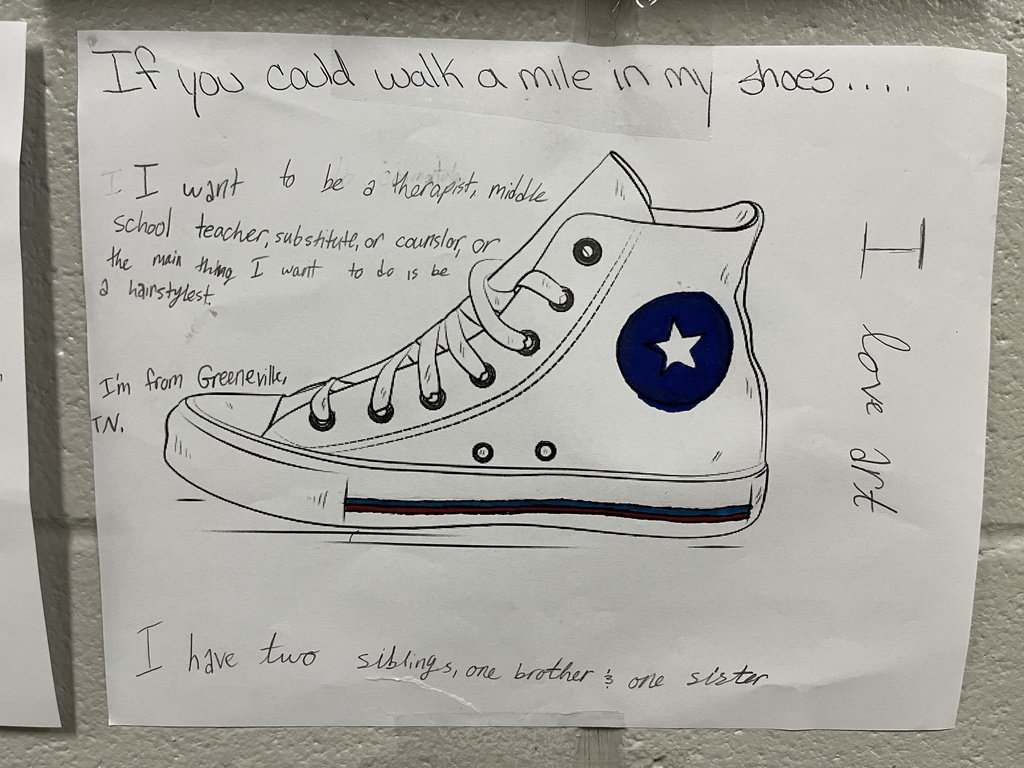 If you could walk a mile in my shoes....
I want to be a therapist, middle
school teacher, substitute, or counslor, or
the main thing I want to do is be
a hairstylest.
I'm from Greeneville,
TN.
I love art
I have two siblings, one brother & one sister